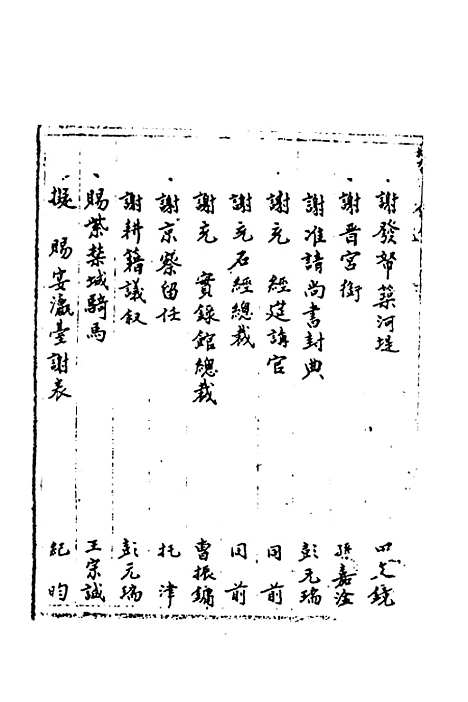 謝發帑築河堤
謝晉宮銜 孫嘉淦
謝准請尚書封典 彭元瑞
謝充 經筵講官 同前
謝充石經總裁 同前
謝充 實錄館總裁 曹振鏞
謝京察留任 托津
謝耕藉議叙 彭元瑞
賜紫禁城騎馬 王宗誠
擬 賜宴瀛臺謝表 紀昀